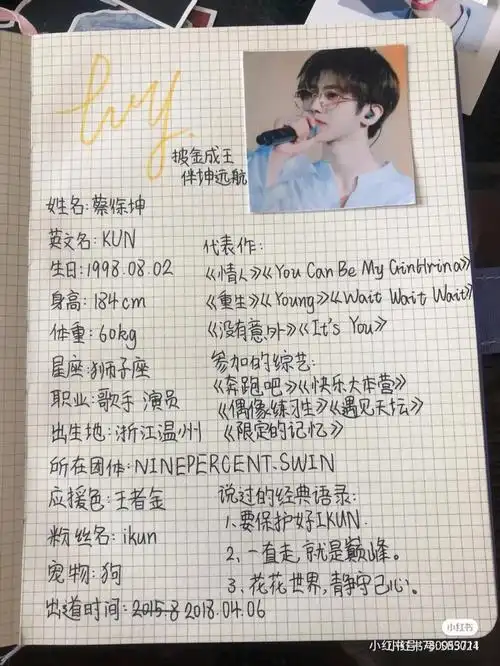 披金成王
伴坤远航
姓名:蔡徐坤
英文名:KUN
生日:1998.08.02
身高:184cm
体重:60kg
星座:狮子座
职业:歌手 演员
出生地:浙江温州
所在团体:NINEPERCENT、SWIN
应援色:王者金
粉丝名:ikun
宠物:狗
出道时间:2015.8 2018.04.06
代表作:
《情人》《You Can Be My Ginhlrina》
《重生》《Young》《Wait Wait Wait》
《没有意外》《It's You》
参加的综艺:
《奔跑吧》《快乐大本营》
《偶像练习生》《遇见天坛》
《限定的记忆》
说过的经典语录:
1、要保护好IKUN.
2、一直走,就是巅峰。
3、花花世界,静守己心。
小红书
小红书号: